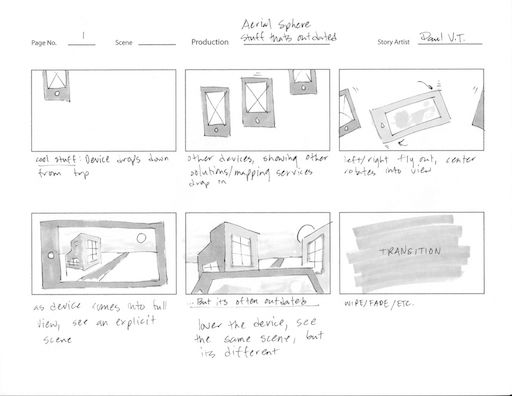 Page No. 1 Scene Production Aerial Sphere
stuff thats outdated Story Artist Paul V.T.
cool stuff: Device drops down
from top
other devices, showing other
solutions/mapping services
drop in
left/right fly out, center
rotates into view
as device comes into full
view, see an explicit
scene
... But its often outdated
lower the device, see
the same scene, but
its different
TRANSITION
WIPE/FADE/ETC.